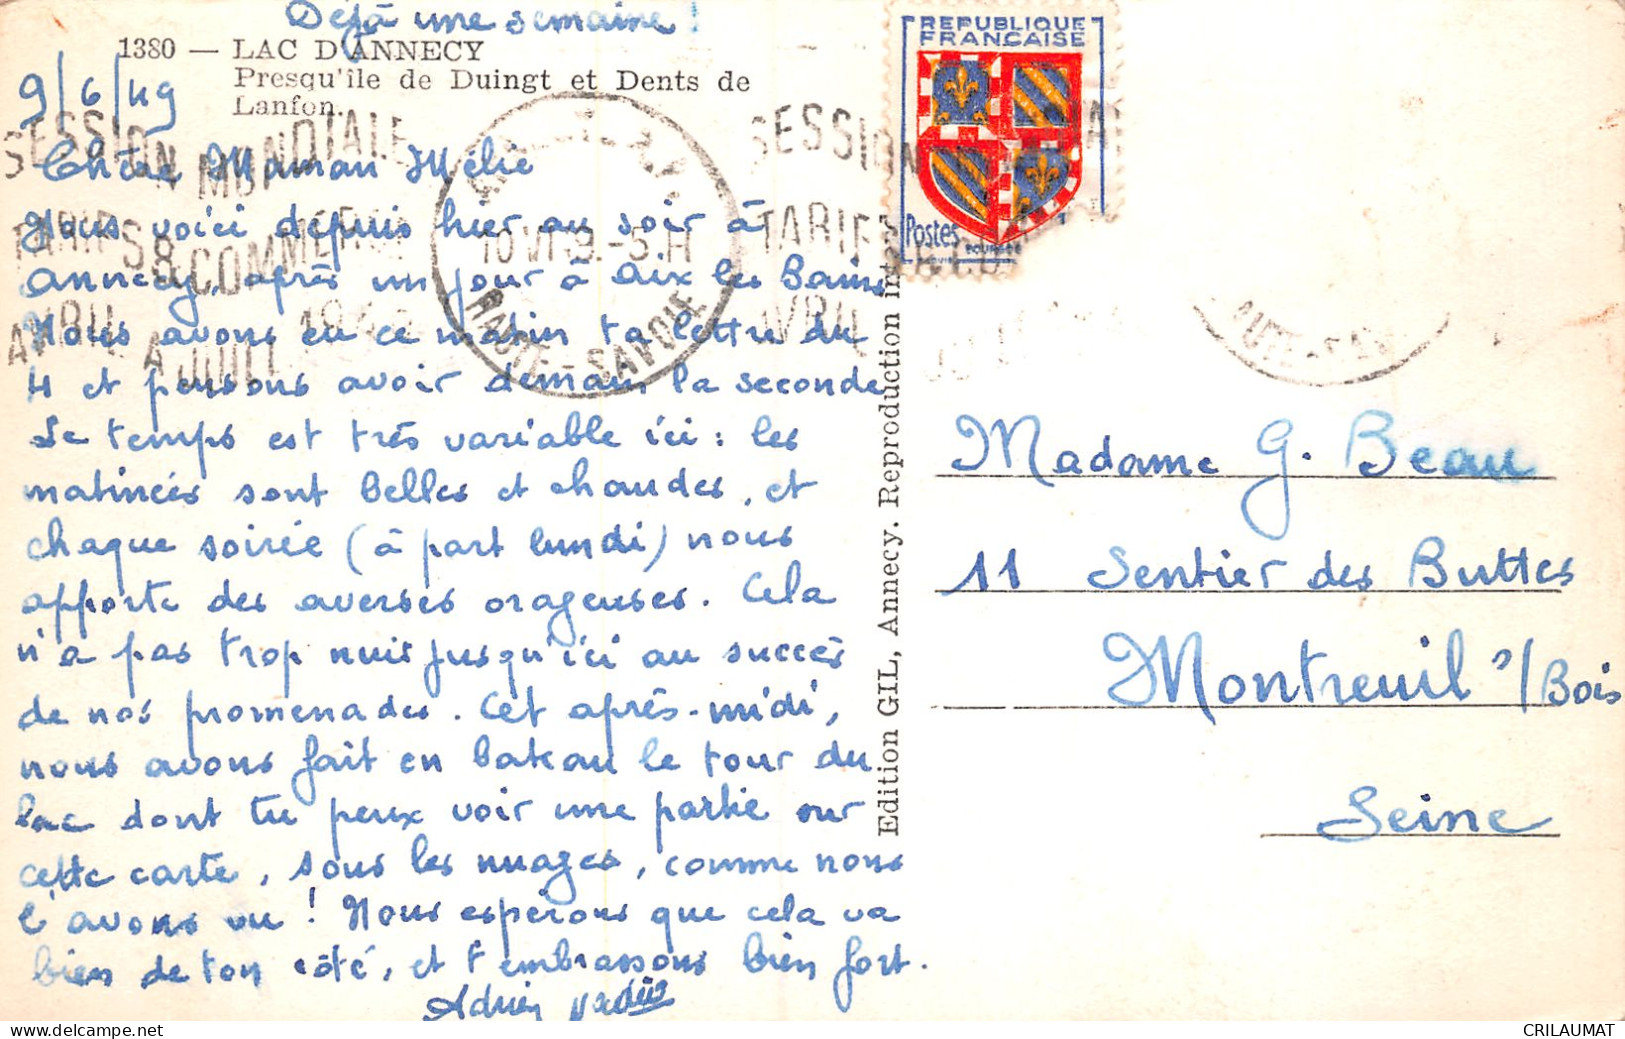 Déjà une semaine !
1380 — LAC D'ANNECY
Presqu'île de Duingt et Dents de
Lanfon.
9/6/49
SESSION MONDIALE
TARIFS & COMMERCE
AVRIL A JUILL. 194
10 VI 5.H
HAUTE-SAVOIE
SESSION
TARIFS
AVRIL
REPUBLIQUE
FRANÇAISE
Postes
Chère Maman Mélie
Nous voici depuis hier au soir à
Annecy, après un jour à Aix les Bains
Nous avons eu ce matin ta lettre du
4 et pensons avoir demain la seconde
Le temps est très variable ici : les
matinées sont belles et chaudes, et
chaque soirée (à part lundi) nous
apporte des averses orageuses. Cela
n'a pas trop nuit jusqu'ici au succès
de nos promenades. Cet après-midi,
nous avons fait en bateau le tour du
lac dont tu peux voir une partie sur
cette carte, sous les nuages, comme nous
l'avons vu ! Nous espérons que cela va
bien de ton côté, et t'embrassons bien fort.
Adrien
Edition GIL, Annecy. Reproduction int
HAUTE-SAV
Madame G. Beau
11 Sentier des Buttes
Montreuil s/Bois
Seine
CRILAUMAT